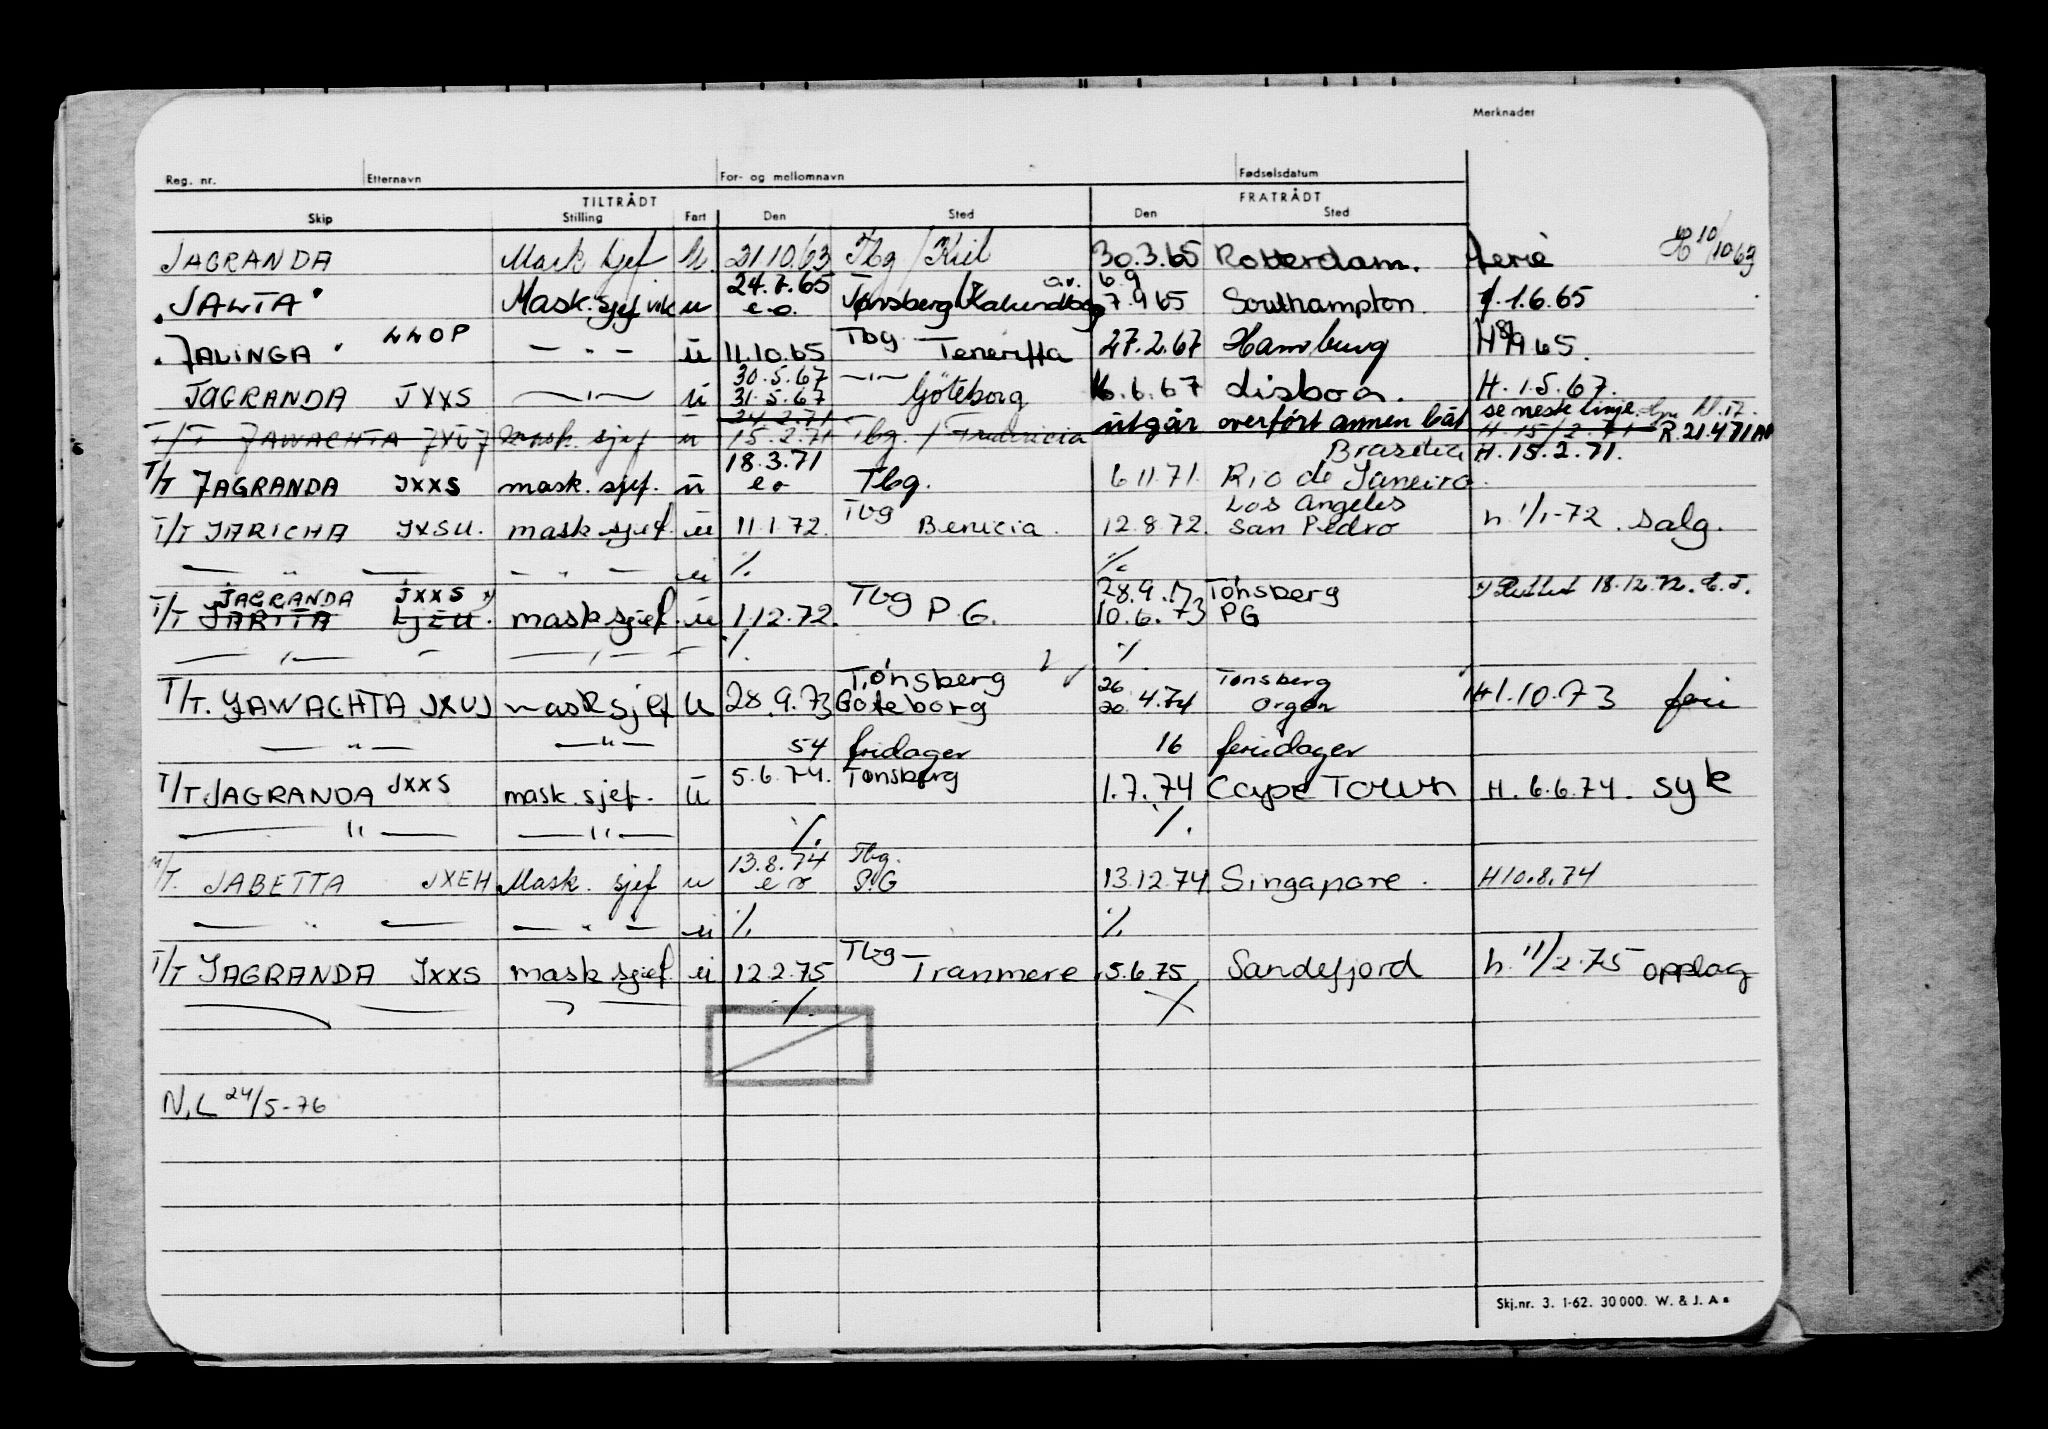 Merknader
Reg. nr. Etternavn For- og mellomnavn Fødselsdatum
TILTRÅDT FRATRÅDT
Skip Stilling Fart Den Sted Den Sted
JAGRANDA Mask sjef u. 21.10.63 Tbg / Kiel 30.3.65 Rotterdam. ferie H 10/10 63
24.7.65 6.9
"JALTA" Mask. sjef vik u e.o. Tønsberg Kalundborg 7.9 65 Southampton. f. 1.6.65
"JALINGA" LLOP — " — ü 11.10.65 Tbg Teneriffa 27.2.67 Hamburg H 65.
30.5.67 — " —
JAGRANDA JXXS — " — ü 31.5.67 Göteborg 6.6.67 Lisboa. H. 1.5.67.
24.2.71 se neste linje
T/T JAWACHTA JXUJ mask. sjef u 15.2.71 Tbg. / Fredericia utgår overført annen båt H. 15/2.71 R.21.4.71
18.3.71 Brasilia H. 15.2.71.
T/T JAGRANDA JXXS mask. sjef. ü eo Tbg. 6 11.71. Rio de Janeiro.
Tbg Los Angeles
T/T JARICHA JXSU. mask sjef. ü 11.1.72. Benicia. 12.8.72. San Pedro h. 1/1-72. salg.
— " — — " — ü ./. ./.
JAGRANDA JXXS x) Tbg 28.9.73 Tönsberg x) Rettet 18.12.72.
T/T JARITA LJEU. mask sjef. ü 1.12.72. P.G. 10.6.73 PG
— " — — " — ./. ./.
Tønsberg 26 Tønsberg
T/T. JAWACHTA JXUJ mask sjef u 28.9.73 Göteborg 20. 4.74 H 1.10.73 feri
— " — — " — 54 fridager 16 feriedager
5.6.74. Tønsberg
T/T JAGRANDA JXXS mask. sjef. ü 1.7.74 Cape Town H. 6.6.74. syk
— " — — " — ./. ./.
13.8.74 Tbg.
M/T. JABETTA JXEH Mask. sjef u e o PG 13.12.74 Singapore. H 10.8.74
— " — — " — ü ./. ./.
T/T JAGRANDA JXXS mask sjef. ü 12.2.75 Tbg Tranmere 5.6.75 Sandefjord h. 11/2.75 opplag
— " — ./. ./.
N.L 24/5-76
Skj.nr. 3. 1-62. 30000. W. & J. A s